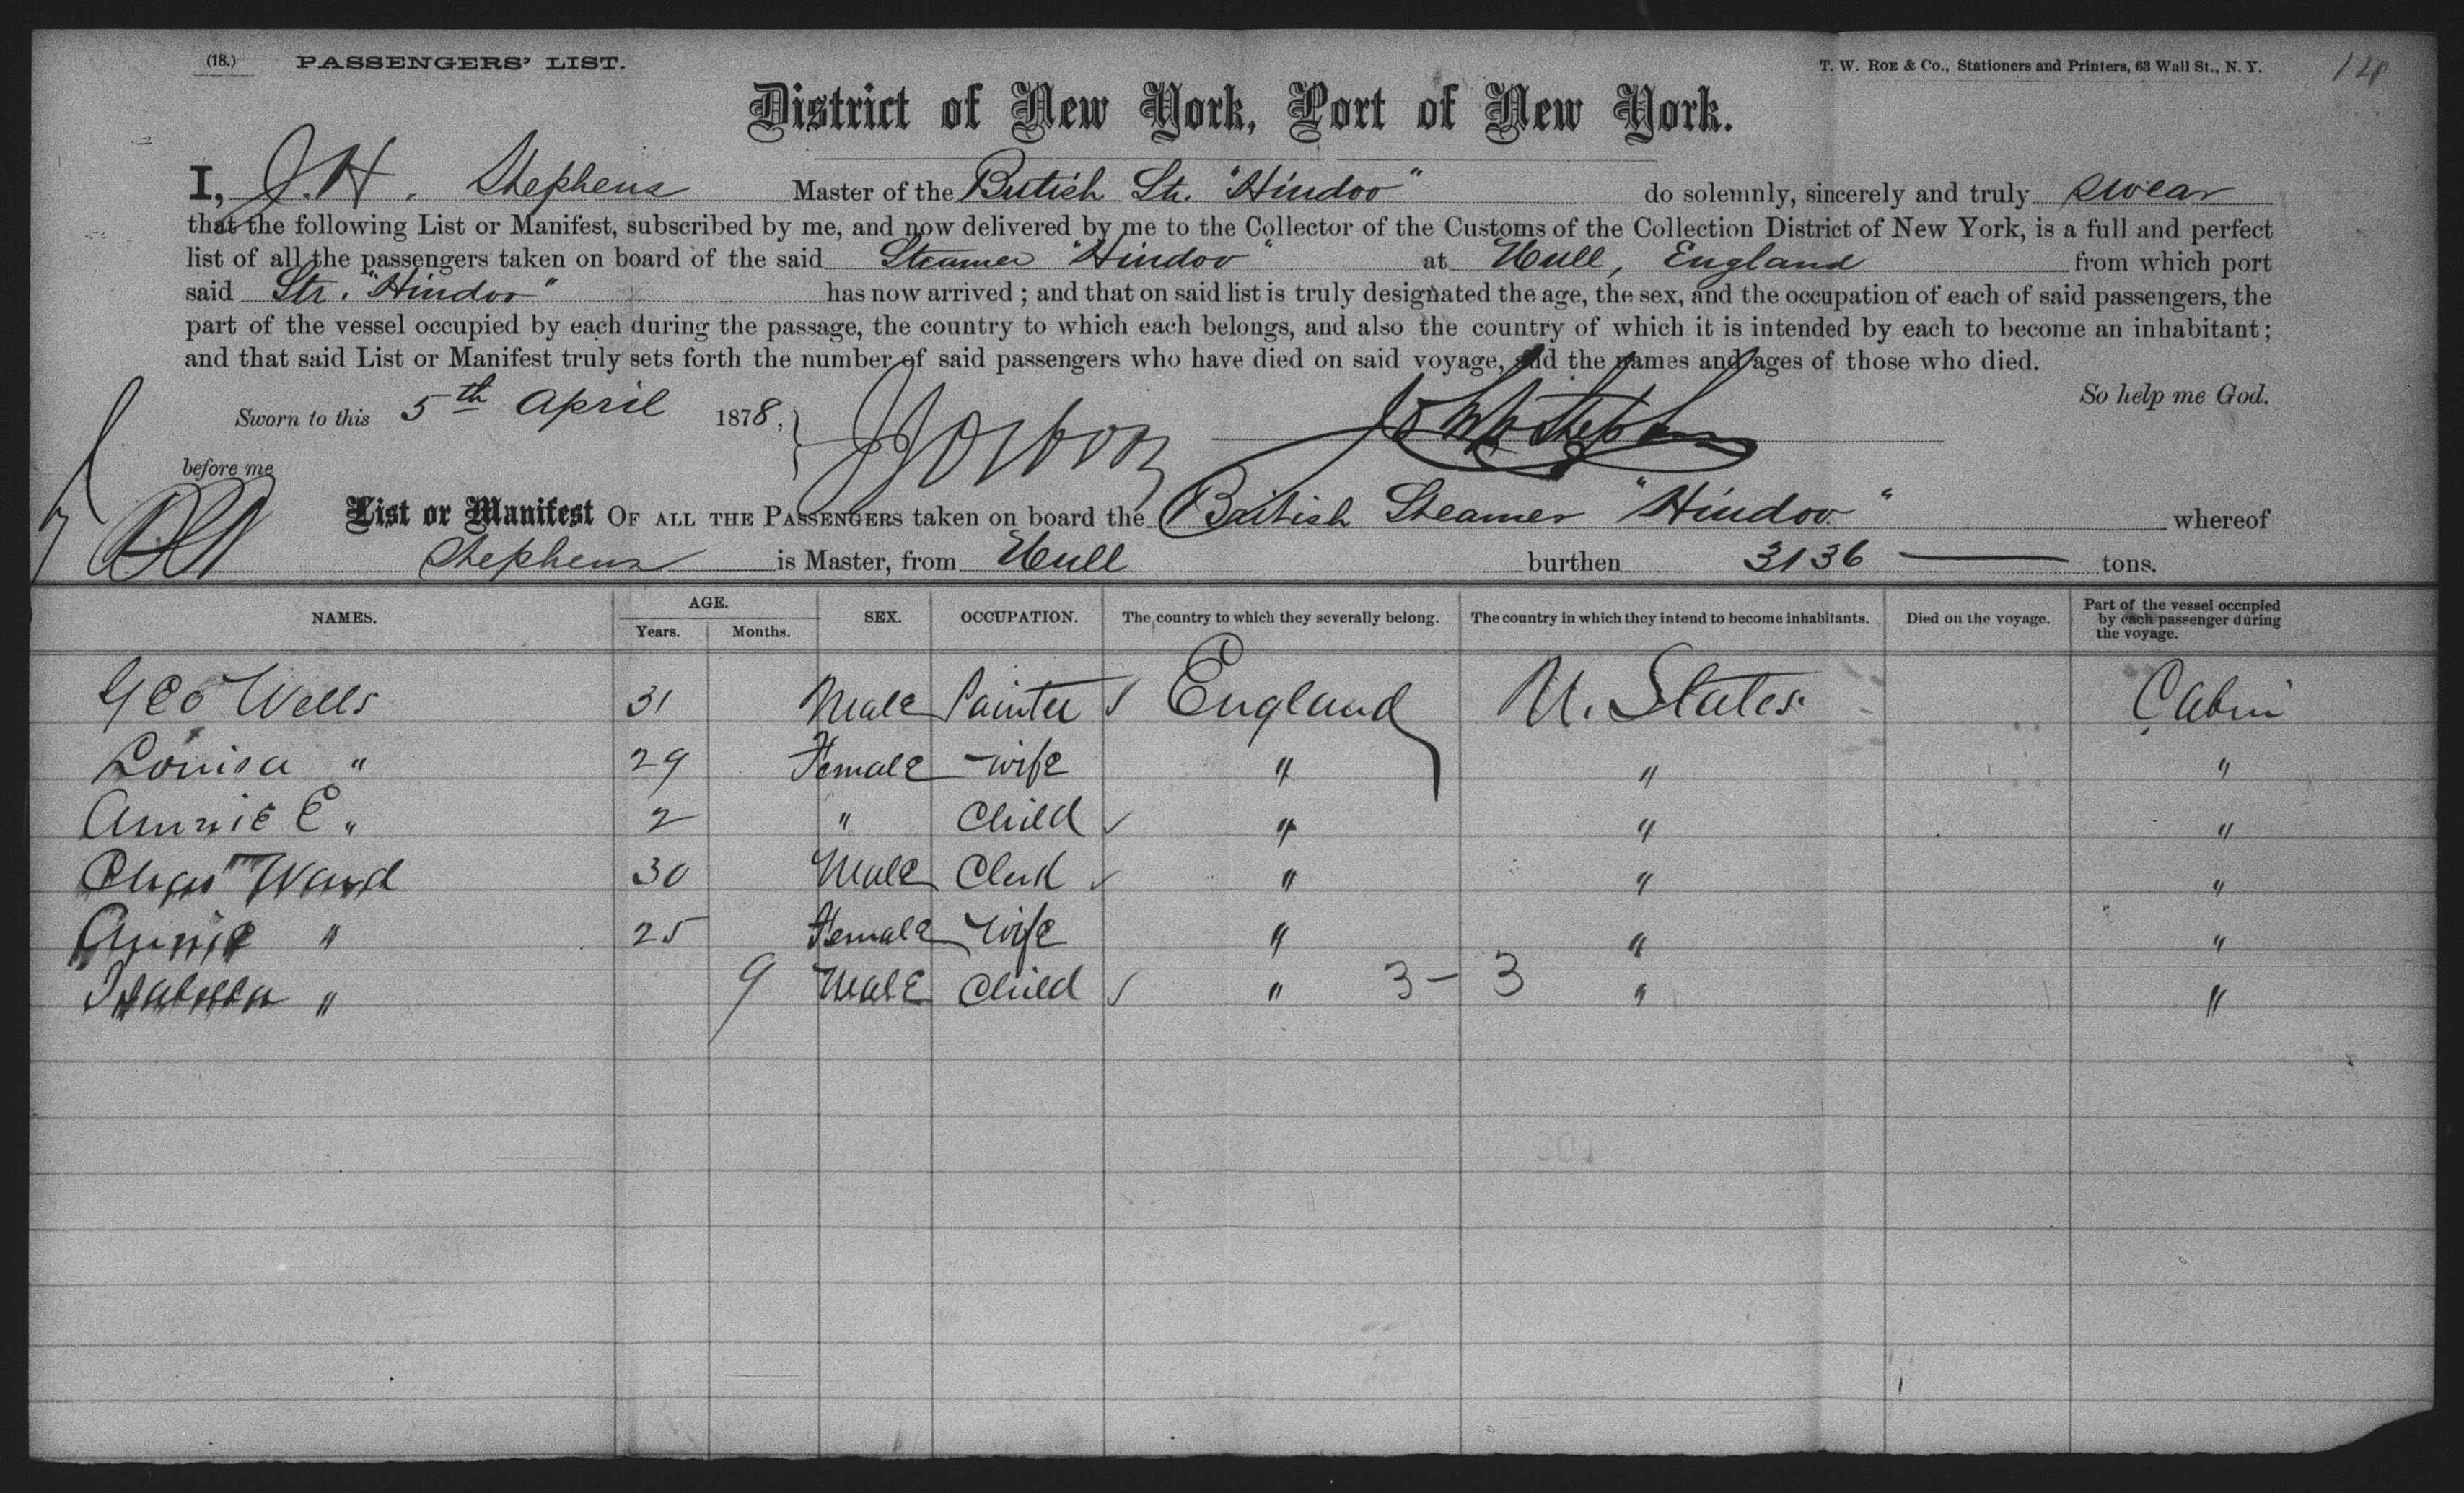 (18.) PASSENGERS' LIST. T. W. ROE & Co., Stationers and Printers, 63 Wall St., N. Y.
District of New York, Port of New York.
I, J. H. Stephens Master of the British Str. "Hindoo" do solemnly, sincerely and truly swear
that the following List or Manifest, subscribed by me, and now delivered by me to the Collector of the Customs of the Collection District of New York, is a full and perfect
list of all the passengers taken on board of the said Steamer "Hindoo" at Hull, England from which port
said Str. "Hindoo" has now arrived; and that on said list is truly designated the age, the sex, and the occupation of each of said passengers, the
part of the vessel occupied by each during the passage, the country to which each belongs, and also the country of which it is intended by each to become an inhabitant;
and that said List or Manifest truly sets forth the number of said passengers who have died on said voyage, and the names and ages of those who died.
So help me God.
Sworn to this 5th April 1878,
before me
List or Manifest OF ALL THE PASSENGERS taken on board the British Steamer "Hindoo" whereof
Stephens is Master, from Hull burthen 3136 — tons.
NAMES. AGE. Years. Months. SEX. OCCUPATION. The country to which they severally belong. The country in which they intend to become inhabitants. Died on the voyage. Part of the vessel occupied by each passenger during the voyage.
Geo Wells 31 Male Painter England U. States. Cabin
Louisa " 29 Female Wife " " "
Annie E " 2 " Child " " "
Chas Ward 30 Male Clerk " " "
Annie " 25 Female Wife " " "
Isabella " 9 Male Child " 3 - 3 " "